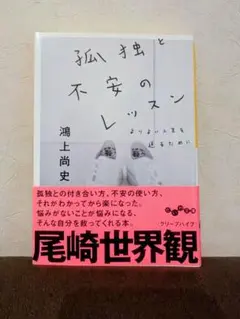 孤独と
不安の
レッスン
よりよい人生を
送るために
鴻上尚史
孤独との付き合い方、不安の使い方、
それがわかってから楽になった。
悩みがないことが悩みになる、
そんな自分を救ってくれる本。
だいわ文庫
クリープハイプ
尾崎世界観